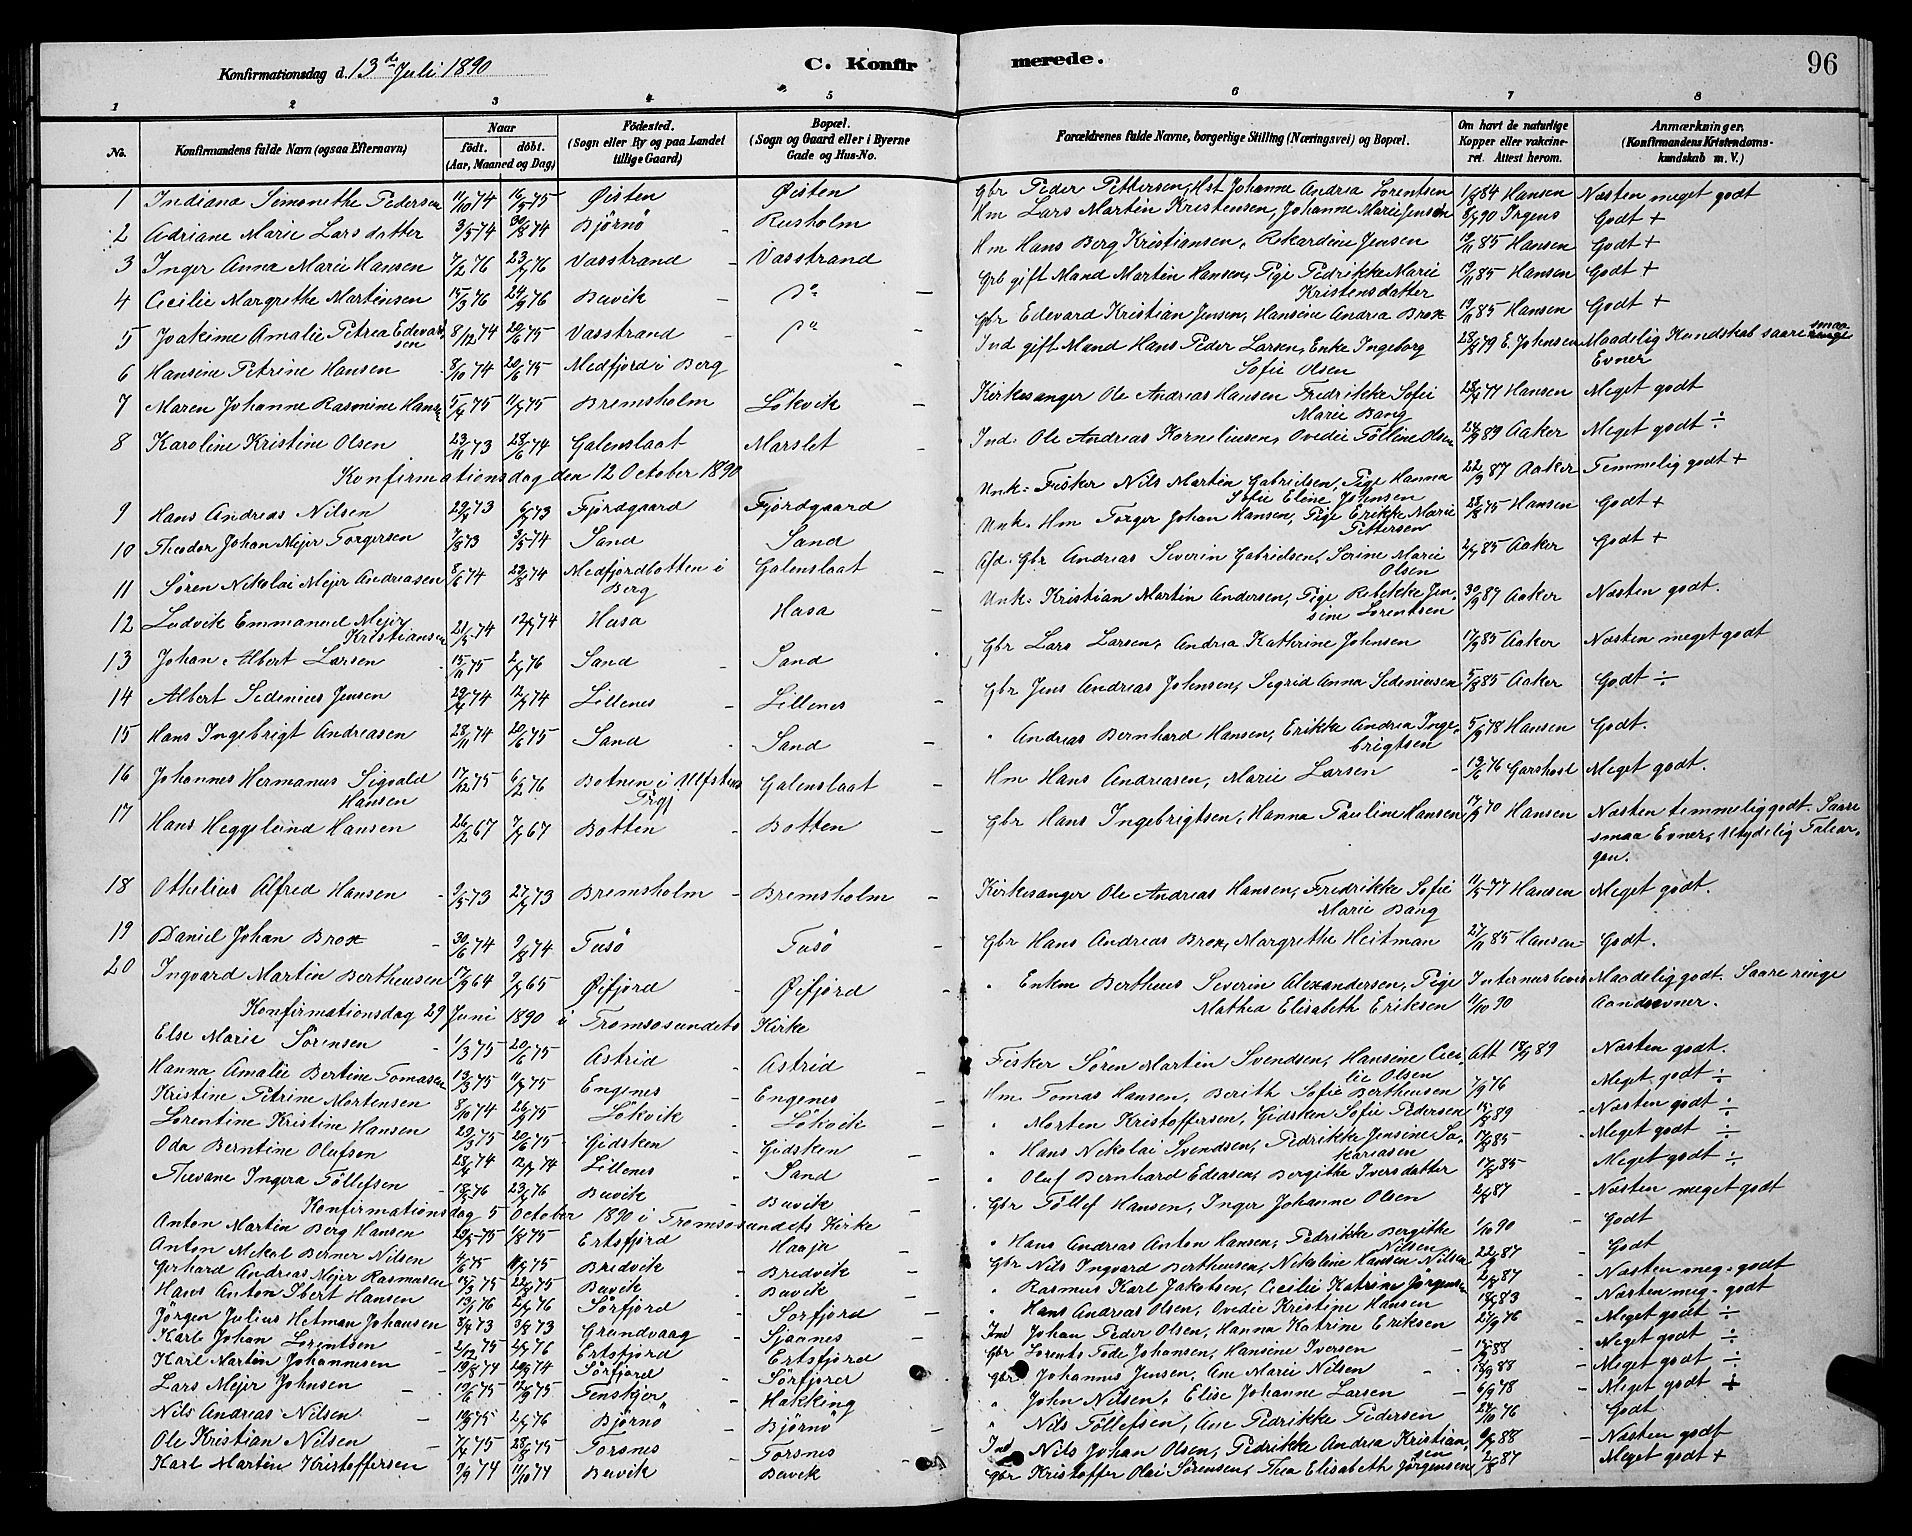 Konfirmationsdag d. 13de Juli 1890 C. Konfir merede. 96
1 2 3 4 5 6 7 8
No. Konfirmandens fulde Navn (ogsaa Efternavn) Naar født. døbt. (Aar, Maaned og Dag) Fødested. (Sogn eller By og paa Landet tillige Gaard) Bopæl. (Sogn og Gaard eller i Byerne Gade og Hus-No.) Forældrenes fulde Navne, borgerlige Stilling (Næringsvei) og Bopæl. Om havt de naturlige Kopper eller vakcineret. Attest herom. Anmærkninger. (Konfirmandens Kristendomskundskab m. V.)
1 Indiana Simonethe Pedersen 11/10 74 16/5 75 Øisten Øisten Gbr Peder Pettersen, Hst Johanna Andrea Lorentsen 1/8 84 Hansen Næsten meget godt
2 Adriane Marie Larsdatter 3/5 74 30/8 74 Bjørnø Rusholm Hm Lars Martin Kristensen, Johanne Marie Jensen 8/7 90 Irgens Godt +
3 Inger Anna Marie Hansen 7/2 76 23/7 76 Vasstrand Vasstrand Hm Hans Berg Kristiansen, Rikardine Jensen 19/11 85 Hansen Godt +
4 Cecilie Margrethe Martinsen 15/3 76 24/9 76 Buvik Do Gbr gift Mand Martin Hansen, Pige Pedrikke Marie Kristensdatter 19/11 85 Hansen Godt +
5 Joakime Amalie Petrea Edevardsen 8/12 74 20/6 75 Vasstrand Do Gbr Edevard Kristian Jensen, Hansine Andrea Brox 19/11 85 Hansen Godt +
6 Hansine Petrine Hansen 8/10 74 20/6 75 Medfjord i Berg Ind gift Mand Hans Peder Larsen, Enke Ingeborg Sofie Olsen 79 E. Johnsen Maadelig Kundskab saare smaa Evner
7 Maren Johanne Rasmine Hansen 75 11/7 75 Bremsholm Løkvik Kirkesanger Ole Andreas Hansen Fredrikke Sofie Marie Bang 77 Hansen Meget godt
8 Karoline Kristine Olsen 23/11 73 28/6 74 Galenslaat Marslet Ind. Ole Andreas Korneliusen, Ovedie Tølline Olsen 89 Aaker Meget godt ÷
Konfirmationsdag den 12 October 1890
9 Hans Andreas Nilsen 73 73 Fjordgaard Fjordgaard Unk: Fisker Nils Martin Gabrielsen, Pige Hanna Sofie Eline Johnsen 22/9 87 Aaker Temmelig godt +
10 Theodor Johan Mejer Torgersen 7/8 73 3/5 74 Sand Sand Unk. Hm Torger Johan Hansen, Pige Erikke Marie Pettersen 28/8 75 Hansen Godt +
11 Søren Nikolai Mejer Andreasen 8/6 74 74 Medfjordbotten i Berg Galenslaat Afd. Gbr Andreas Severin Gabrielsen, Sorine Marie Olsen 85 Aaker Godt +
12 Ludvik Emmanuel Mejer Kristiansen 21/5 74 12/7 74 Husa Husa Unk: Kristian Martin Andersen, Pige Rebekke Jensine Lorentsen 30/9 87 Aaker Næsten godt.
13 Johan Albert Larsen 15/11 75 2/7 76 Sand Sand Gbr Lars Larsen, Andrea Katherine Johnsen 17/9 85 Aaker Næsten meget godt
14 Albert Sedenius Jensen 74 12/7 74 Lillenes Lillenes Gbr Jens Andreas Johnsen, Sigrid Anna Sedeniusen 5/8 85 Aaker Godt ÷
15 Hans Ingebrigt Andreasen 28/11 74 20/6 75 Sand Sand " Andreas Bernhard Hansen, Erikke Andrea Ingebrigtsen 5/9 78 Hansen Godt.
16 Johannes Hermanus Sigvald Hansen 17/12 75 6/2 76 Botnen i Ulfsfjord Prgj Galenslaat Hm Hans Andreasen, Marie Larsen 13/6 76 Meget godt.
17 Hans Heggelund Hansen 26/2 67 7/7 67 Botten Botten Gbr Hans Ingebrigtsen, Hanna Pauline Hansen 17/9 70 Hansen Næsten temmelig godt. Saare smaa Evner, Utydelig Taleorgan.
18 Othelius Alfred Hansen 9/5 73 27/7 73 Bremsholm Bremsholm Kirkesanger Ole Andreas Hansen, Fredrikke Sofie Marie Bang 11/5 77 Hansen Meget godt.
19 Daniel Johan Brox 30/6 74 9/8 74 Tusø Tusø Gbr Hans Andreas Brox, Margrethe Heitman 27/11 85 Hansen Godt.
20 Ingvard Martin Bertheusen 17/9 64 9/7 65 Øifjord Øifjord " Enkm Bertheus Severin Alexandersen, Pige Mathea Elisabeth Eriksen 11/10 90 Maadelig godt. Saare ringe Aandsevner.
Konfirmationsdag 29 Juni 1890 i Tromsøsundets Kirke
Else Marie Sørensen 1/3 75 20/6 75 Astrid Astrid Fisker Søren Martin Svendsen, Hansine Cecilie Olsen Att 18/9 89 Næsten godt.
Hanna Amalie Bertine Tomasen 13/3 75 11/7 75 Engenes Engenes Hm Tomas Hansen, Berith Sofie Bertheusen 7/9 76 Meget godt ÷
Kristine Petrine Mortensen 8/10 74 75 Løkvik Løkvik " Morten Kristoffersen, Gidsken Sofie Pedersen 89 Næsten godt ÷
Lorentine Kristine Hansen 29/3 75 20/6 75 Gidsken Gidsken " Hans Nikolai Svendsen, Pedrikke Jensine Sakariasen 85 Meget godt ÷
Oda Berntine Olufsen 74 12/7 74 Lillenes Sand " Oluf Bernhard Edeasen, Bergithe Iversdatter 85 Meget godt ÷
Thevane Ingera Tøllefsen 76 23/7 76 Buvik Buvik Gbr Tøllef Hansen, Inger Johanne Olsen 87 Næsten meget godt
Konfirmationsdag 5 October 1890 i Tromsøsundets Kirke
Anton Martin Berg Hansen 29/5 75 1/8 75 Ertsfjord Haaja " Hans Andreas Anton Hansen, Pedrikke Bergithe Nilsen 1/10 90 Godt
Anton Mekal Berner Nilsen 4/6 75 75 Bredvik Bredvik Gbr Nils Ingvard Bertheusen, Nikoline Hansen Nilsen 22/9 87 Godt
Gerhard Andreas Mejer Rasmusen 15/3 75 75 Buvik Buvik " Rasmus Karl Jakobsen, Cecilie Katrine Jørgensen 87 Næsten meg. godt
Hans Anton Ibert Hansen 76 76 Sørfjord Sørfjord " Hans Andreas Olsen, Ovedie Kristine Hansen 83 Næsten meg. godt
Jørgen Julius Hetman Johansen 73 3/8 73 Grundvaag Sjaanes Ind Johan Peder Olsen, Hanna Katrine Eriksen 76 Meget godt ÷
Karl Johan Lorentsen 2/12 75 76 Ertsfjord Ertsfjord Gbr Lorents Tode Johansen, Hansine Iversen 88 Meget godt ÷
Karl Martin Johannesen 19/8 74 74 Sørfjord Sørfjord Gbr Johannes Jensen, Ane Marie Nilsen 88 Meget godt ÷
Lars Mejer Johnsen 19/6 75 75 Tenskjer Hakking " John Nilsen, Elise Johanne Larsen 6/9 78 Meget godt ÷
Nils Andreas Nilsen 75 76 Bjørnø Bjørnø " Nils Tøllefsen, Ane Pedrikke Pedersen 76 Godt
Ole Kristian Nilsen 7/4 75 75 Torsnes Torsnes Ind Nils Johan Olsen, Pedrikke Andrea Kristiansen 88 Næsten godt
Karl Martin Kristoffersen 9/9 74 11/10 74 Buvik Buvik Gbr Kristoffer Olai Sørensen, Thea Elisabeth Jørgensen 2/8 87 Meget godt +